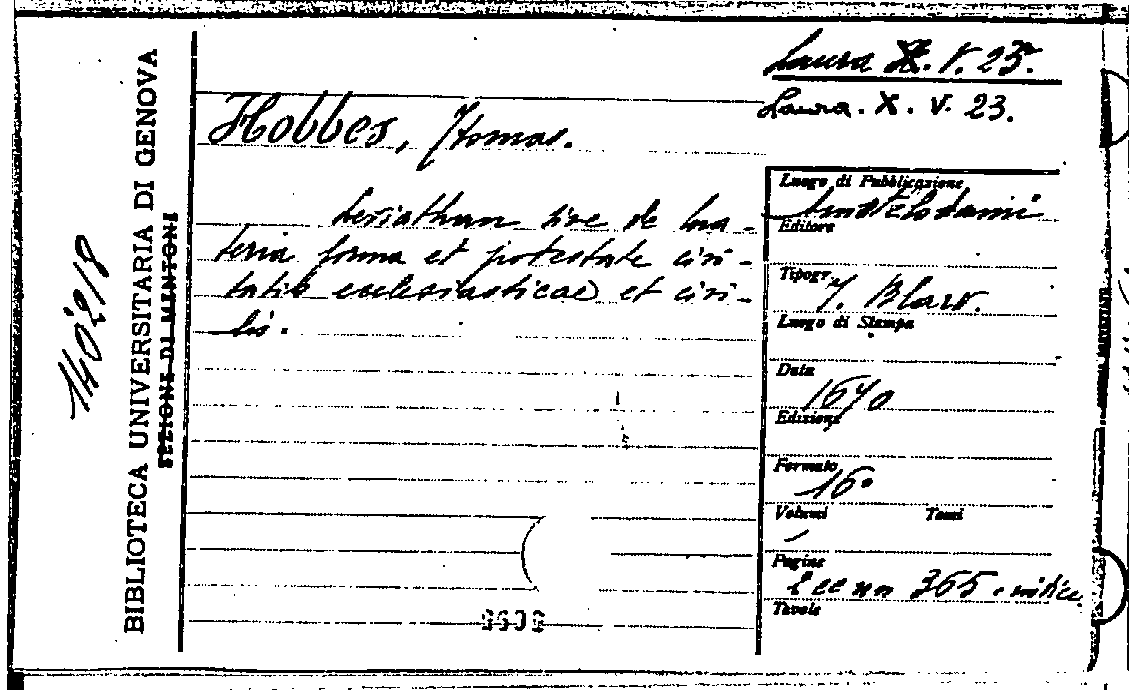 Laura X. V. 23.
Laura. X. V. 23.
Hobbes, Thomas.
Leviathan sive de ma-
teria forma et potestate civi-
tatis ecclesiasticae et civi-
lis.
140218
BIBLIOTECA UNIVERSITARIA DI GENOVA
SEZIONE DI MANTONI
Luogo di Pubblicazione
Amstelodami
Editore
Tipogr.
J. Blaev.
Luogo di Stampa
Data
1670
Edizione
Formato
16°
Volumi Tomi
Pagine
365
Tavole